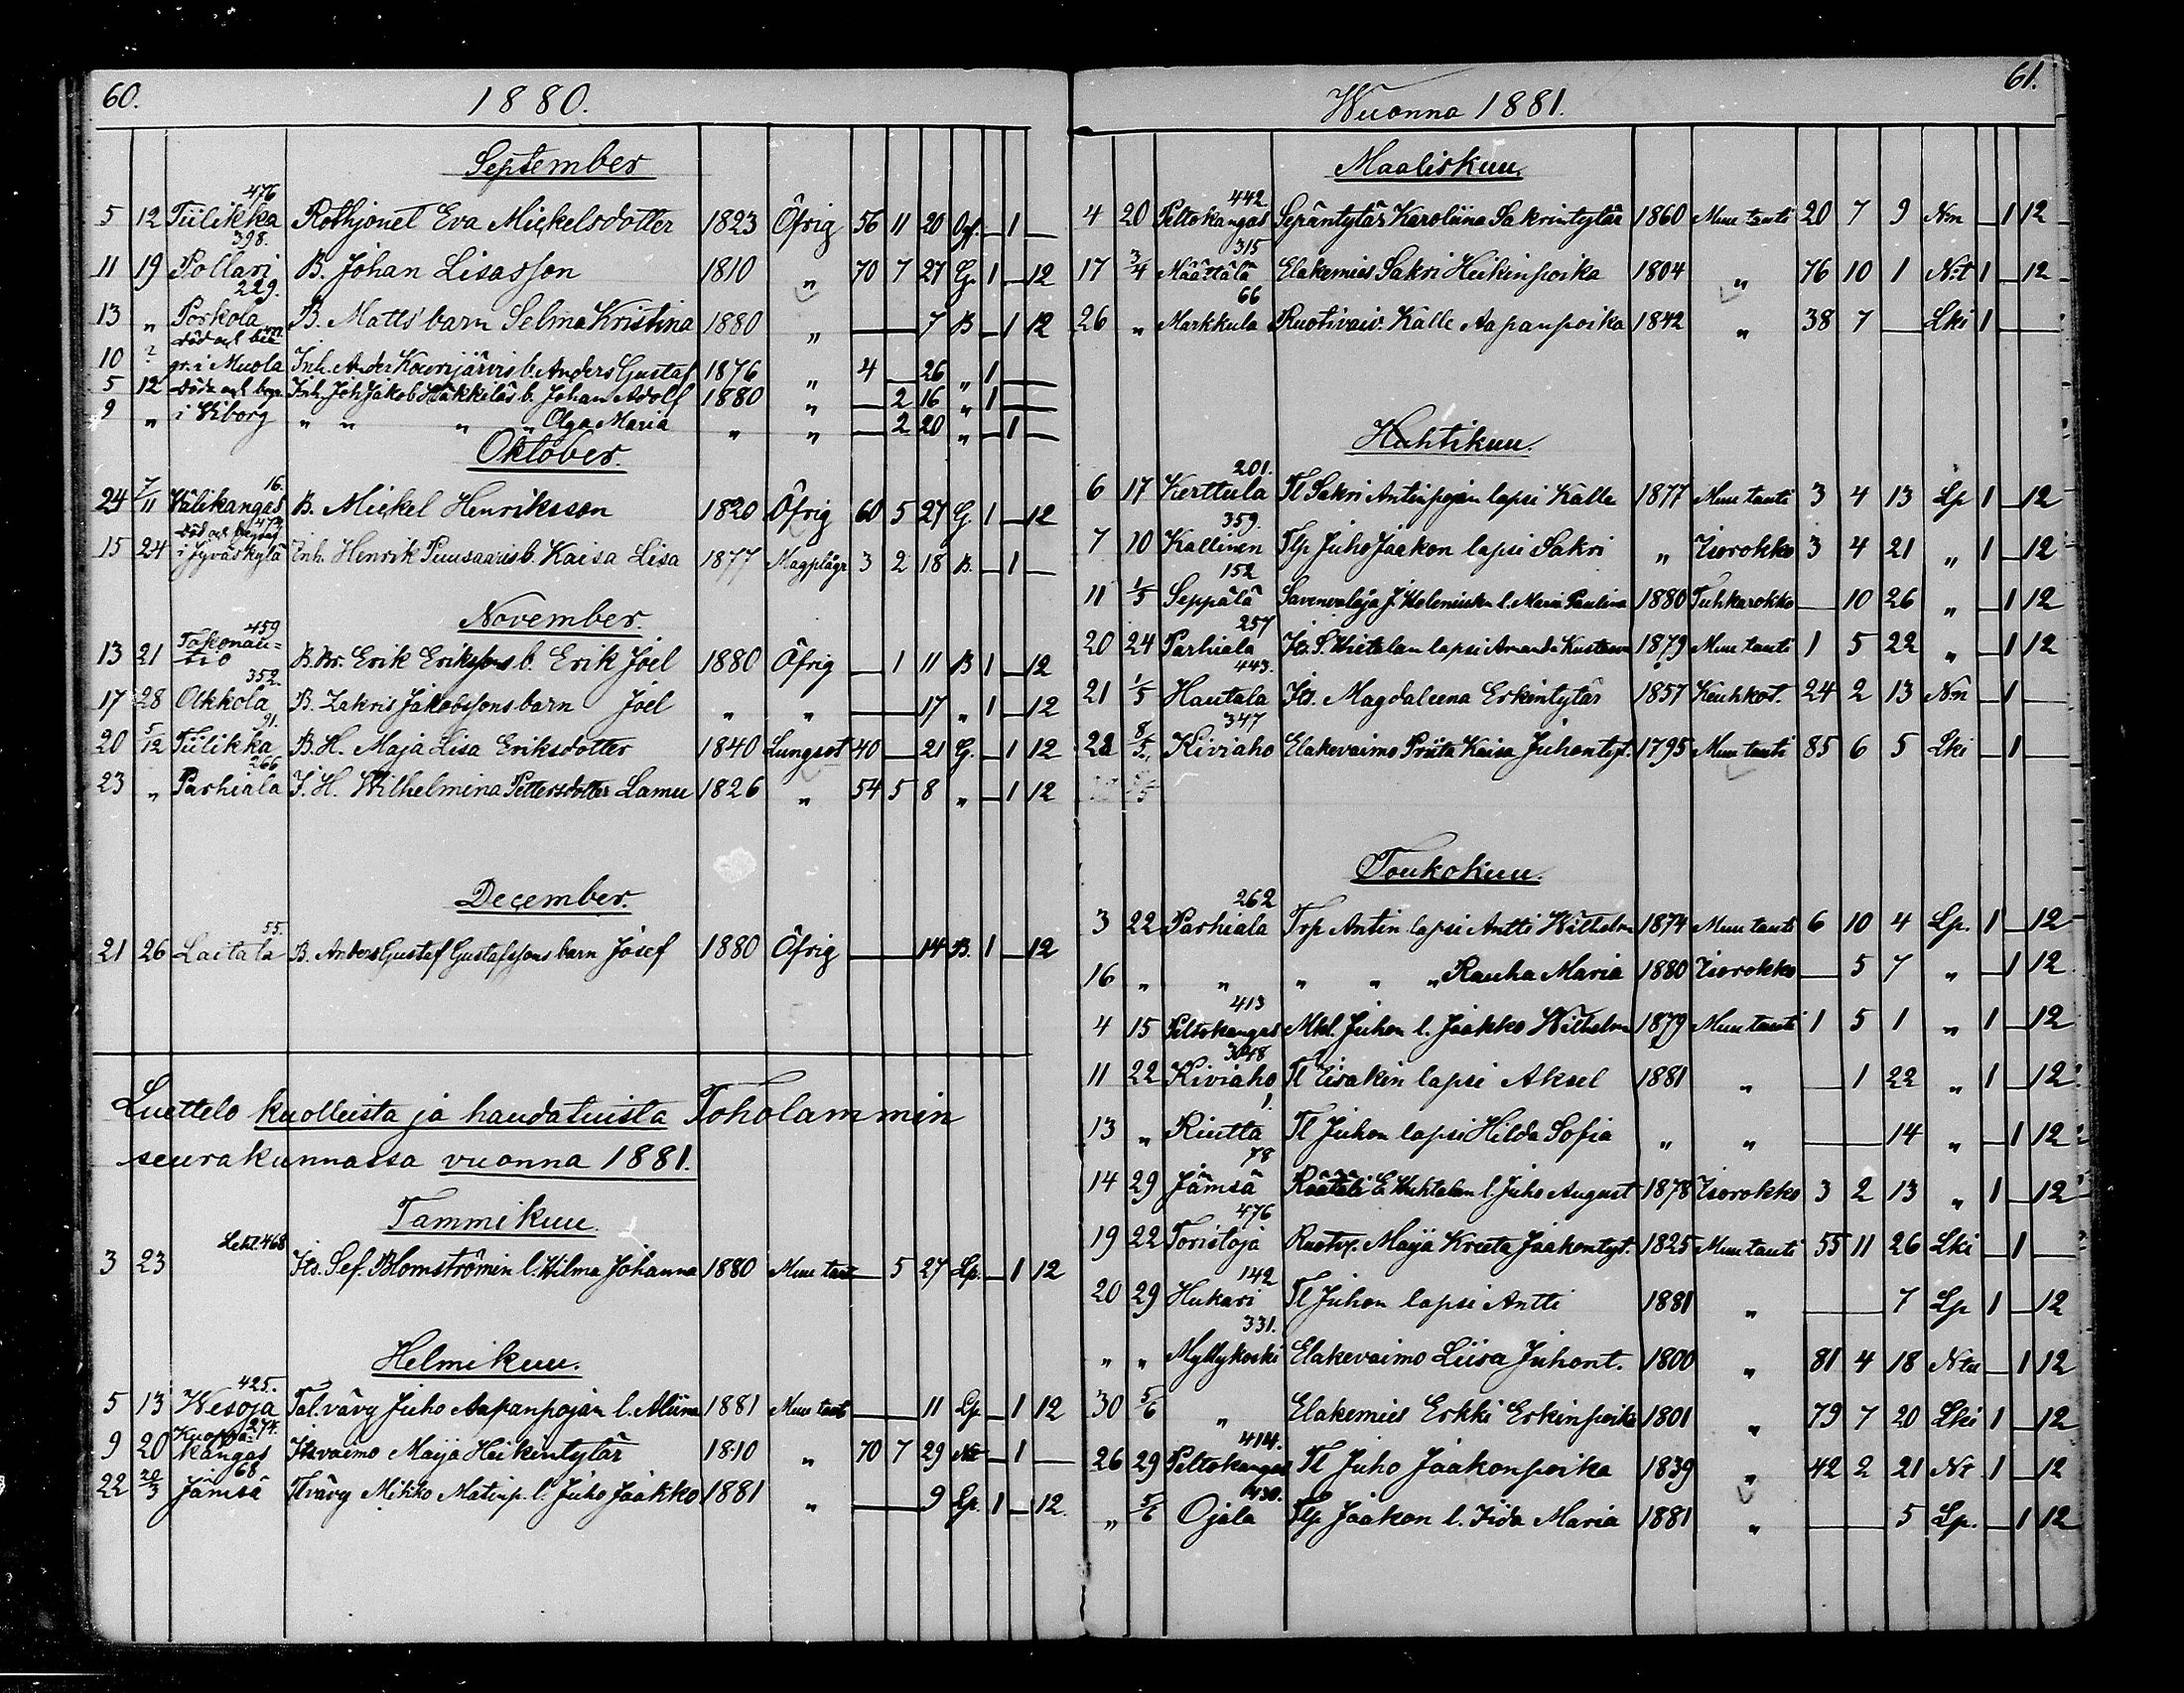 60.
1880.
September
476
5 12 Tiilikka Rothjonet Eva Mickelsdotter 1823 Öfrig 56 11 20 — 1 —
398.
11 19 Pollari B. Johan Lisasson 1810 „ 70 7 27 G. 1 — 12
229.
13 „ Porkola B. Matts' barn Selma Kristina 1880 „ — 7 B — 1 12
död och
10 ? gr. i Muola Inh. And. b. Anders Gustaf 1876 „ 4 — 26 „ 1 —
5 12 död och begr. Inh. Joh Jakob Häkkiläs b. Johan Adolf 1880 „ — 2 16 „ 1 —
9 „ i Wiborg „ „ „ „ Olga Maria „ „ — 2 20 „ — 1 —
Oktober.
16.
24 7/11 Välikangas B. Mickel Henriksson 1820 Öfrig 60 5 27 G. 1 — 12
473
död och begrag
15 24 i Jyväskylä Inh. Henrik Puusaaris b. Kaisa Lisa 1877 Magplågr 3 2 18 B. — 1 —
November.
459
13 21 Torkonau= B. Br. Erik Erikssons b. Erik Joel 1880 Öfrig — 1 11 B 1 — 12
tio
352.
17 28 Olkkola B. Zakris Jakobssons barn Joel „ „ — 17 „ 1 — 12
91.
20 5/12 Tiilikka B. H. Maja Lisa Eriksdotter 1840 Lungsot 40 — 21 G. — 1 12
266
23 „ Parhiala I. H. Wilhelmina Pettersdotter Lamu 1826 „ 54 5 8 „ — 1 12
December.
55.
21 26 Laitala B. Anders Gustaf Gustafssons barn Josef 1880 Öfrig — 14 B. 1 — 12
Luettelo kuolleista ja haudatuista Toholammin
seurakunnassa vuonna 1881.
Tammikuu.
Lehl. 468
3 23 Its. Sef. Blomströmin l. Hilma Johanna 1880 Muu taut — 5 27 Lp. — 1 12
Helmikuu.
425.
5 13 Wesoja Tal. vävy Juho Aapanpojan l. Aliina 1881 Muu tauti — 11 Lp — 1 12
Kuoppa= 274.
9 20 kangas Its. vaimo Maija Heikintytär 1810 „ 70 7 29 — 1 —
68
22 20/3 Jämsä Tl vävy Mikko Matinp. l. Juho Jaakko 1881 „ — 9 Lp. 1 — 12.
61.
Wuonna 1881.
Maaliskuu.
442
4 20 Peltokangas Sepäntytär Karoliina Sakrintytär 1860 Muu tauti 20 7 9 Nm — 1 12
315
17 3/4 Määttälä Elakemies Sakri Heikinpoika 1804 „ 76 10 1 N:t 1 — 12
66
26 „ Markkula Ruotivaiv. Kalle Aapanpoika 1842 „ 38 7 — Lki 1 —
Huhtikuu.
201.
6 17 Kerttula Tl Sakri Antinpojan lapsi Kalle 1877 Muu tauti 3 4 13 Lp 1 — 12
359.
7 10 Kallinen Tlp Juho Jaakon lapsi Sakri „ Isorokko 3 4 21 „ 1 — 12
152
11 1/5 Seppälä Savenvalaja J. l. Maria Pauliina 1880 Tuhkarokko — 10 26 „ — 1 12
257
20 24 Parhiala Its. S. lapsi Amanda Kustaava 1879 Muu tauti 1 5 22 „ — 1 12
443.
21 1/5 Hautala Its. Magdaleena Erkintytär 1857 Keuhkot. 24 2 13 Nm — 1 —
347
22 8/5 Kiviaho Elakevaimo Priita Kaisa Juhontyt. 1795 Muu tauti 85 6 5 Lki — 1 —
Toukokuu.
262
3 22 Parhiala Trp Antin lapsi Antti Wilhelm 1874 Muu tauti 6 10 4 Lp. 1 — 12
16 „ „ „ „ „ Rauha Maria 1880 Isorokko — 5 7 „ — 1 12
413
4 15 Peltokangas Mkl. Juhon l. Jaakko Wilhelm 1879 Muu tauti 1 5 1 „ 1 — 12
348
11 22 Kiviaho Tl Iisakin lapsi Aksel 1881 „ — 1 22 „ 1 — 12
1.
13 „ Riutta Tl Juhon lapsi Hilda Sofia „ „ — 14 „ — 1 12
78
14 29 Jämsä Räätäli E. l. Juho August 1878 Isorokko 3 2 13 „ 1 — 12
476
19 22 Toristoja Maija Kreeta Jaakontyt. 1825 Muu tauti 55 11 26 Lki — 1 —
142
20 29 Hukari Tl Juhon lapsi Antti 1881 „ — 7 Lp 1 — 12
331.
„ „ Myllykoski Elakevaimo Liisa Juhont. 1800 „ 81 4 18 — 1 12
30 5/6 „ Elakemies Erkki Erkinpoika 1801 „ 79 7 20 Lki 1 — 12
414.
26 29 Peltokangas Tl Juho Jaakonpoika 1839 „ 42 2 21 1 — 12
430.
„ 5/6 Ojala Tlp Jaakon l. Iida Maria 1881 „ — 5 Lp. — 1 12